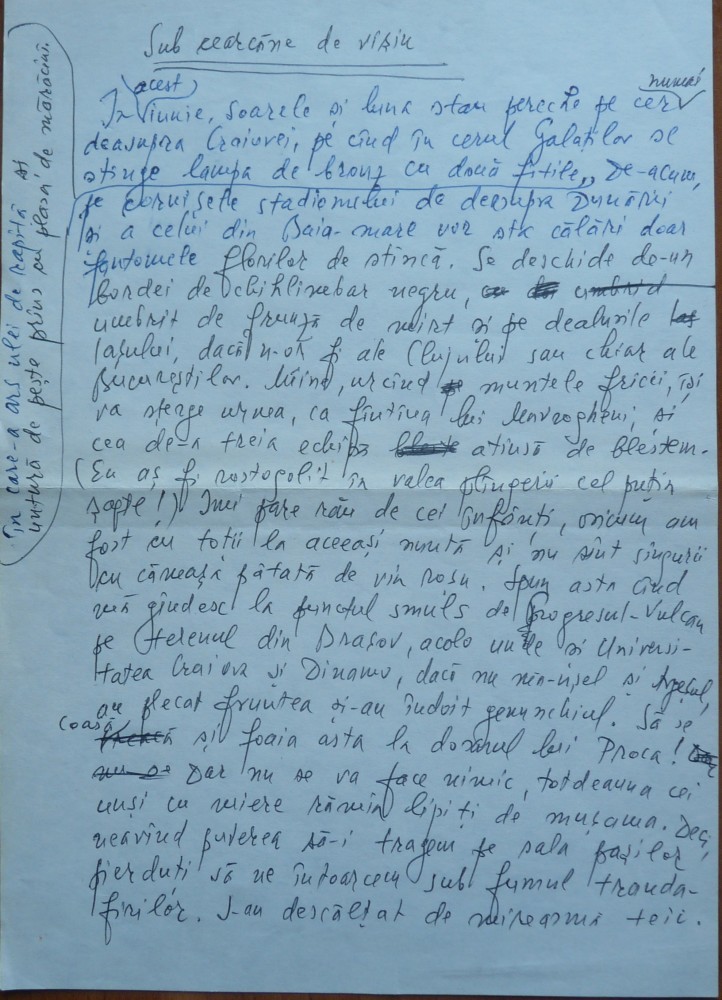 Sub cearcăne de vișiu
În acest iunie, soarele și luna stau pereche pe cer numai
deasupra Craiovei, pe cînd în cerul Galaților se
stinge lampa de bronz cu două fitile,
în care-a ars ulei de rapiță și
untură de pește prins pe plasă de mărăcini.
De-acum,
pe cornișele stadionului de deasupra Dunării
și a celui din Baia-mare vor sta călări doar
fantomele florilor de stîncă. Se deschide de-un
bordei de chihlimbar negru,
umbrit de frunză de mirt și pe dealurile
Iașului, dacă n-or fi ale Clujului sau chiar ale
Bucureștilor. Mîine, urcînd muntele fricii, își
va șterge urma, ca fîntîna lui Mavrogheni, și
cea de-a treia echipă atinsă de blestem.
(Eu aș fi rostogolit în valea plîngerii cel puțin
șapte!) Îmi pare rău de cei înfrînți, oricum am
fost cu toții la aceeași nuntă și nu sînt singurii
cu cămașă pătată de vin roșu. Spun asta cînd
mă gîndesc la punctul smuls de Progresul-Vulcan
pe terenul din Brașov, acolo unde și Universi-
tatea Craiova și Dinamo, dacă nu mă-nșel și Argeșul,
au plecat fruntea și-au îndoit genunchiul. Să se
coasă și foaia asta la dosarul lui Proca!
Dar nu se va face nimic, totdeauna cei
unși cu miere rămîn lipiți de mușama. Deci,
neavînd puterea să-i tragem pe sala pașilor
pierduți să ne întoarcem sub fumul tranda-
firilor. S-au descălțat de mireasmă teii.